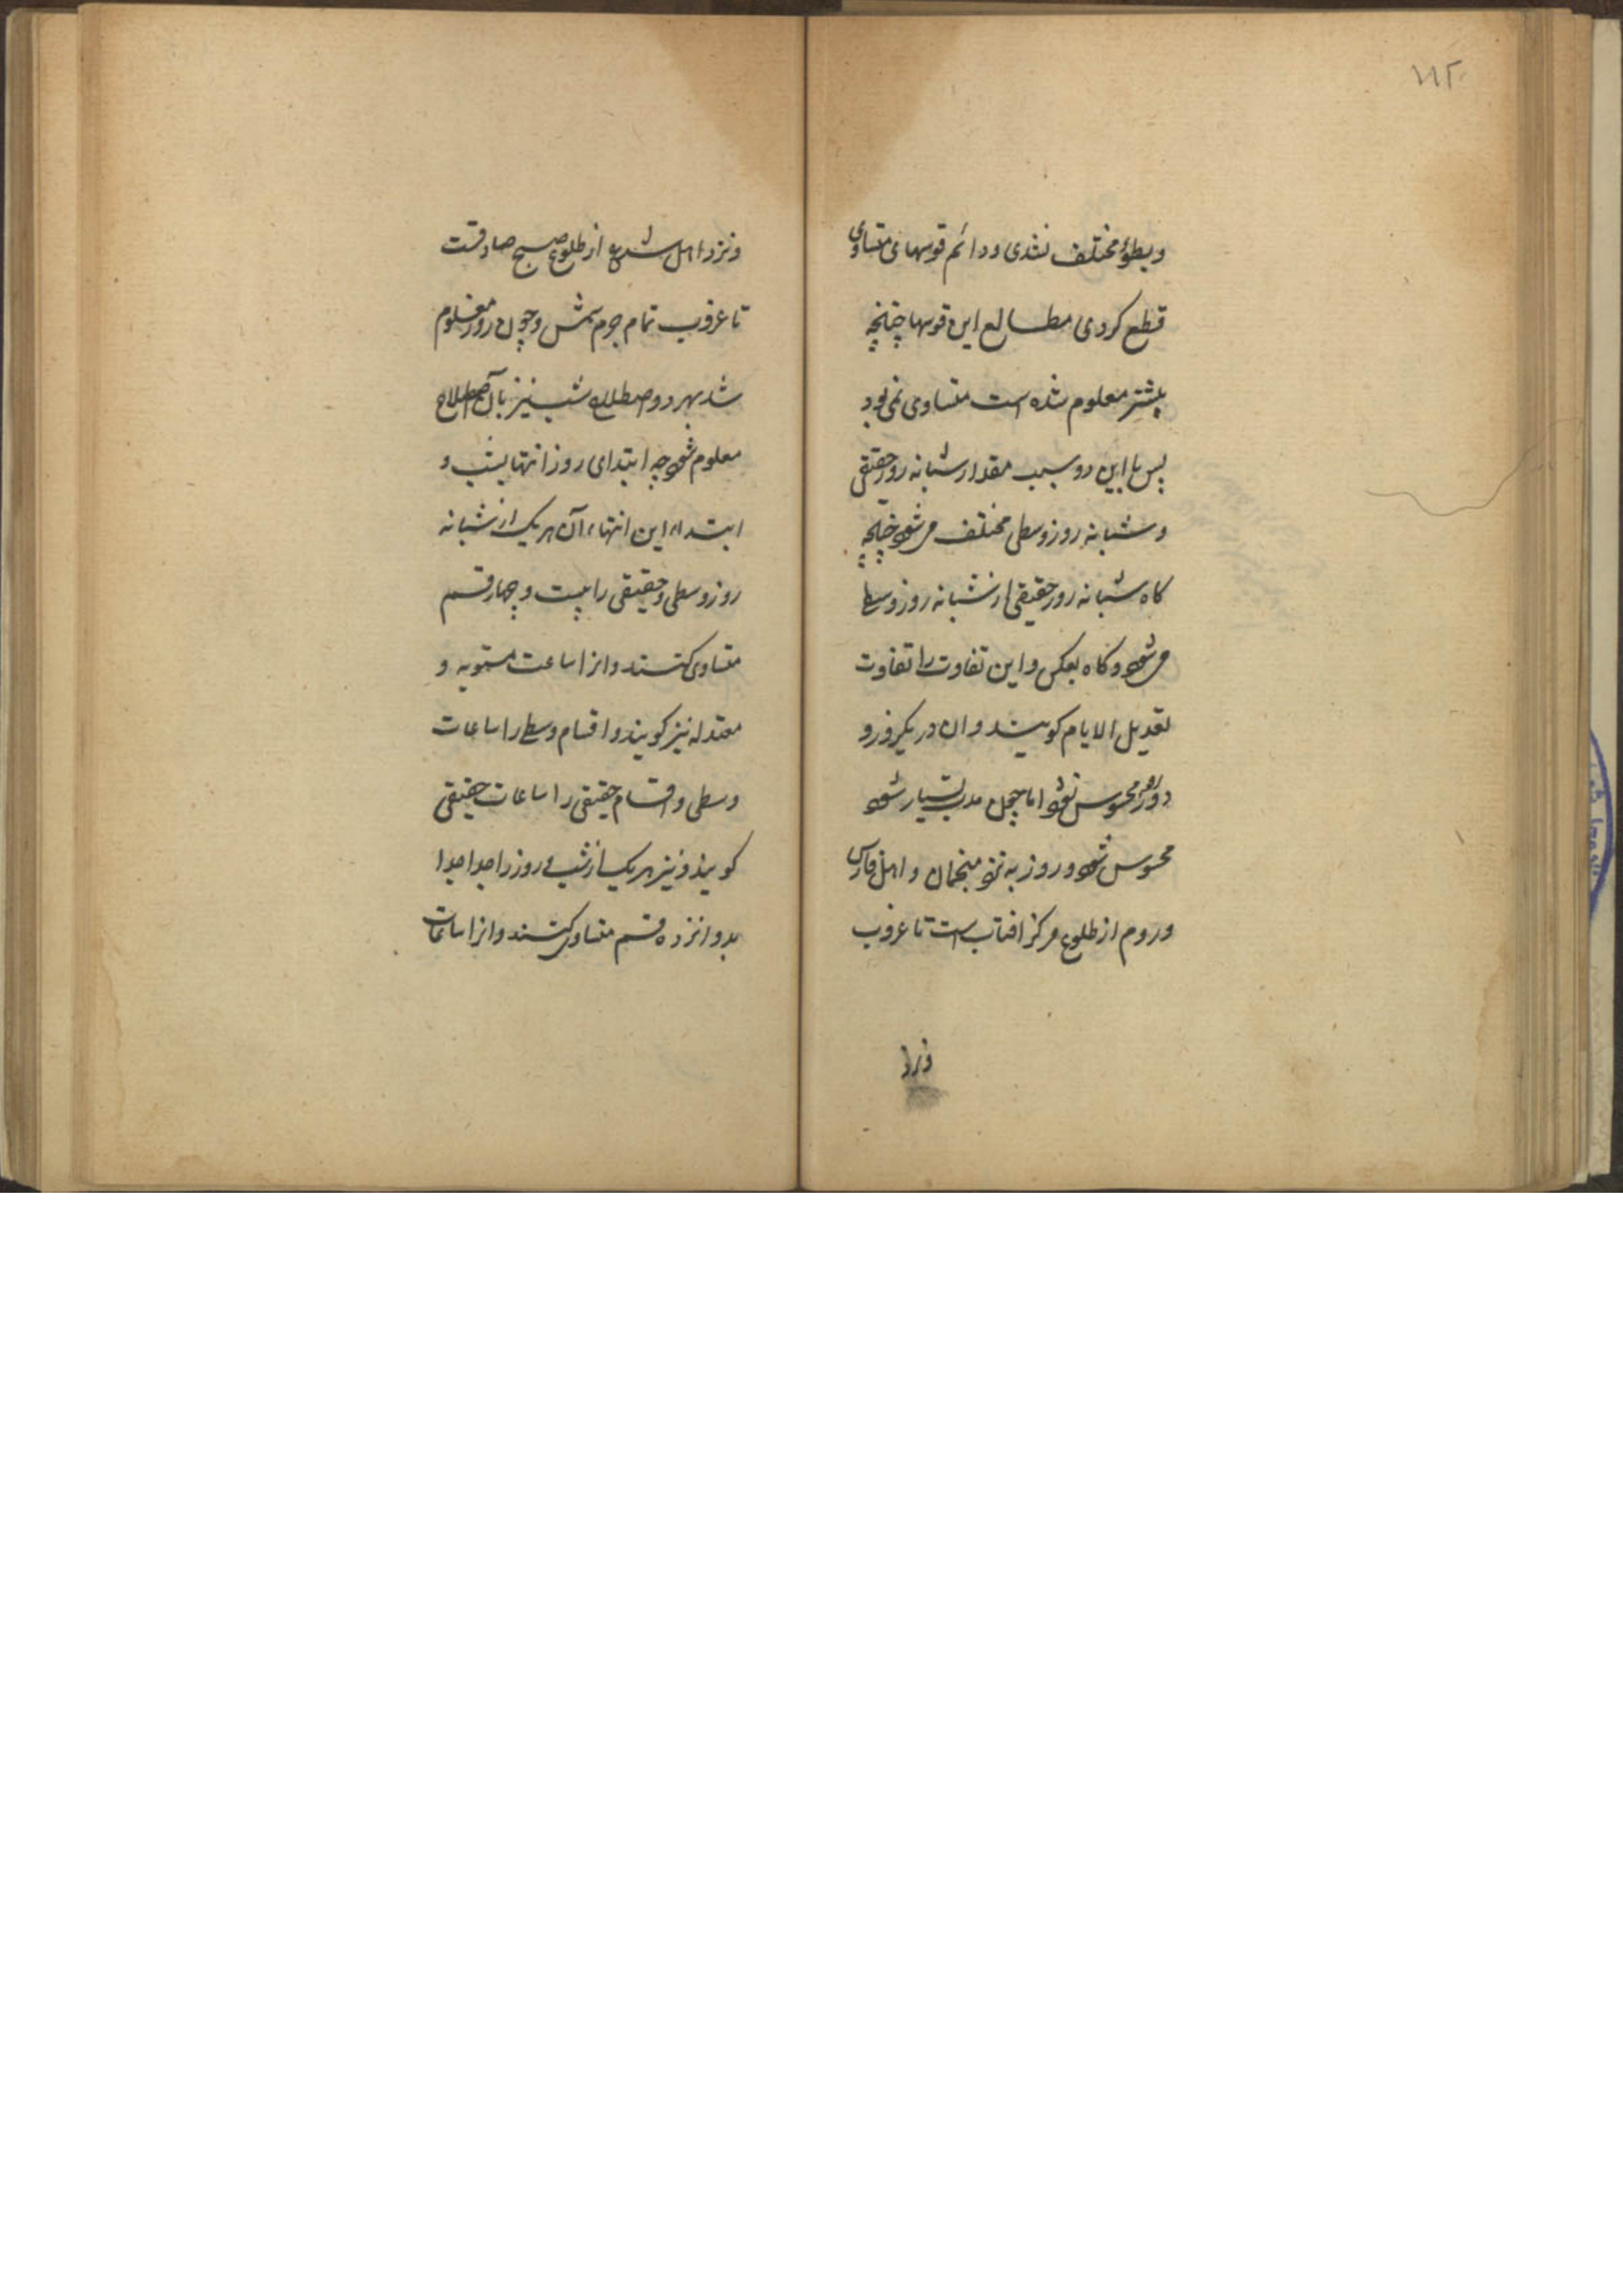 ۱۱۲
وبطؤ مختلف نشدی ودائم قوسهای متساوی
قطع کردی مطالع این قوسها چنانچه
پیشتر معلوم شده است متساوی نمی‌بود
پس با این دو سبب مقدار شبانه روز حقیقی
وشبانه روز وسطی مختلف می شود چنانچه
کاه شبانه روز حقیقی از شبانه روز وسطی
می شود وکاه بعکس واین تفاوت را تفاوت
تعدیل الایام کویند وان در یکروز و
دو روز محسوس نشود اما چون مدت بسیار شود
محسوس شود وروز به نزد منجمان واهل فارس
وروم از طلوع مرکز افتاب است تا غروب
ونزد
ونزد اهل شرع از طلوع صبح صادقست
تا غروب تمام جرم شمس وچون روز معلوم
شد بهر دو اصطلاح شب نیز بآن اصطلاح
معلوم شود چه ابتدای روز انتها یشب و
ابتداء این انتهاء آن هر یک از شبانه
روز وسطی وحقیقی را بیست وچهار قسم
متساوی کنند وانرا ساعت مستویه و
معتدله نیز کویند واقسام وسطی را ساعات
وسطی واقسام حقیقی را ساعات حقیقی
کویند ونیز هر یک از شب وروز را جدا جدا
بدوانزده قسم متساوی کنند وانرا ساعات